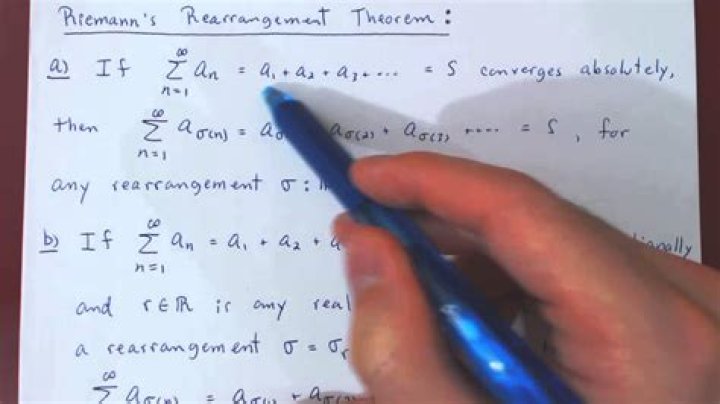 Riemann's Rearrangement Theorem:
a) If ∞∑n=1 an = a1 + a2 + a3 + ... = S converges absolutely,
then ∞∑n=1 aσ(n) = aσ aσ(2) + aσ(3) .... = S, for
any rearrangement σ:
b) If ∞∑n=1 an = a1 + a2 + a
and r∈ℝ is any real
a rearrangement σ = σr
∞∑ aσ(n) = aσ(1) + aσ(2)